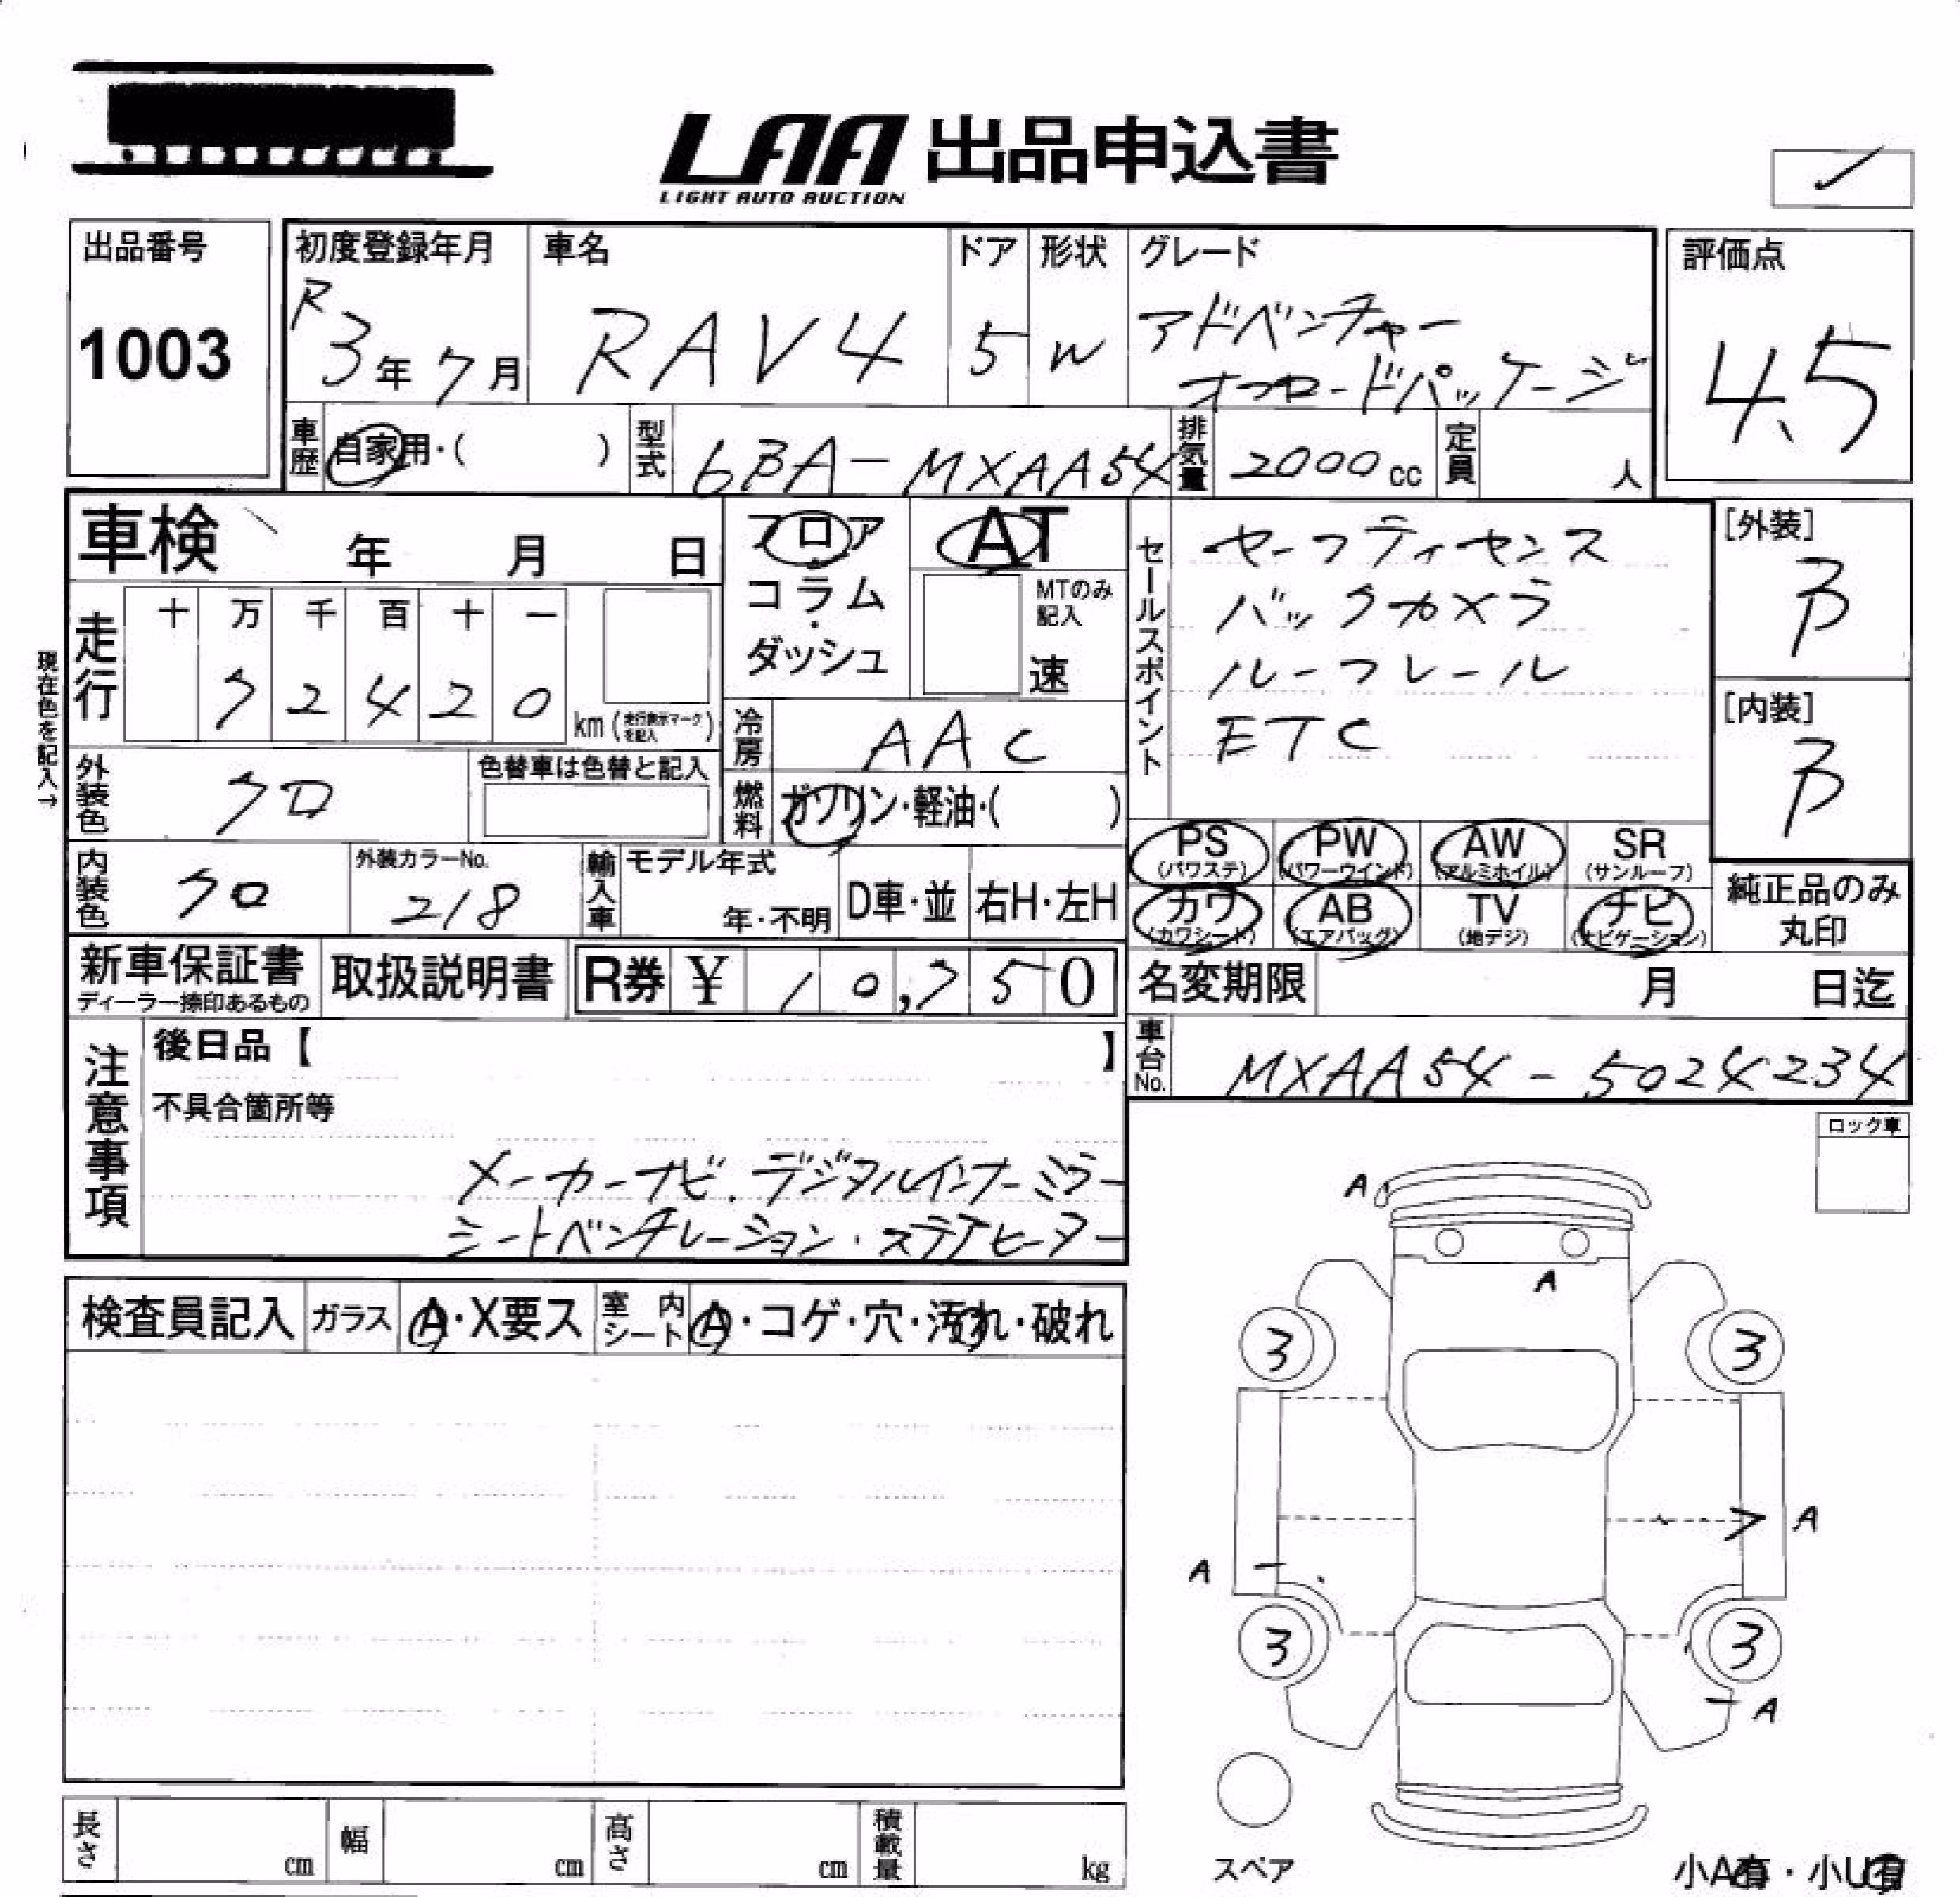 LAA 出品申込書
LIGHT AUTO AUCTION
出品番号
1003
初度登録年月
R3年7月
車名
RAV4
ドア
5
形状
W
グレード
アドベンチャー
オフロードパッケージ
評価点
4.5
車歴
自家用・( )
型式
6BA-MXAA54
排気量
2000cc
定員
人
車検 年 月 日
フロア・コラム・ダッシュ
AT
MTのみ記入
速
セールスポイント
セーフティセンス
バックカメラ
ルーフレール
ETC
[外装]
B
[内装]
B
現在色を記入→
走行
十 万 千 百 十 一
2 4 2 0
km (走行表示マークを記入)
冷房
AAC
外装色
クロ
色替車は色替と記入
燃料
ガソリン・軽油・( )
PS (パワステ)
PW (パワーウインド)
AW (アルミホイル)
SR (サンルーフ)
カワ (カワシート)
AB (エアバッグ)
TV (地デジ)
ナビ (ナビゲーション)
純正品のみ丸印
内装色
クロ
外装カラーNo.
218
輸入車
モデル年式
年・不明
D車・並
右H・左H
新車保証書
ディーラー捺印あるもの
取扱説明書
R券 ¥ 10,750
名変期限 月 日迄
車台No.
MXAA54-5024234
注意事項
後日品【 】
不具合箇所等
メーカーナビ.デジタルインナーミラー
シートベンチレーション・ステアヒーター
ロック車
検査員記入
ガラス
A・X要ス
室内シート
A・コゲ・穴・汚れ・破れ
A
A
3 3
A
A
3 3
A
スペア
長さ cm
幅 cm
高さ cm
積載量 kg
小A有・小U有